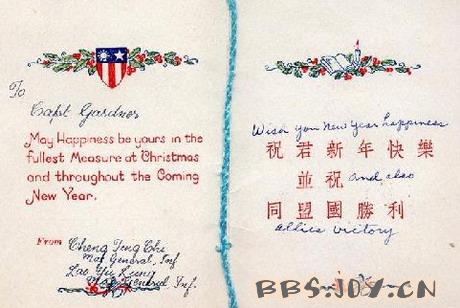 To
Capt Gardner
May Happiness be yours in the
fullest Measure at Christmas
and throughout the Coming
New Year.
From Cheng Teng Chi
Maj General, Inf
Lao Yu Lung
Maj General Inf.
Wish you New Year happiness
祝君新年快樂
並祝 and also
同盟國勝利
allies victory
BBS.JDY.CN